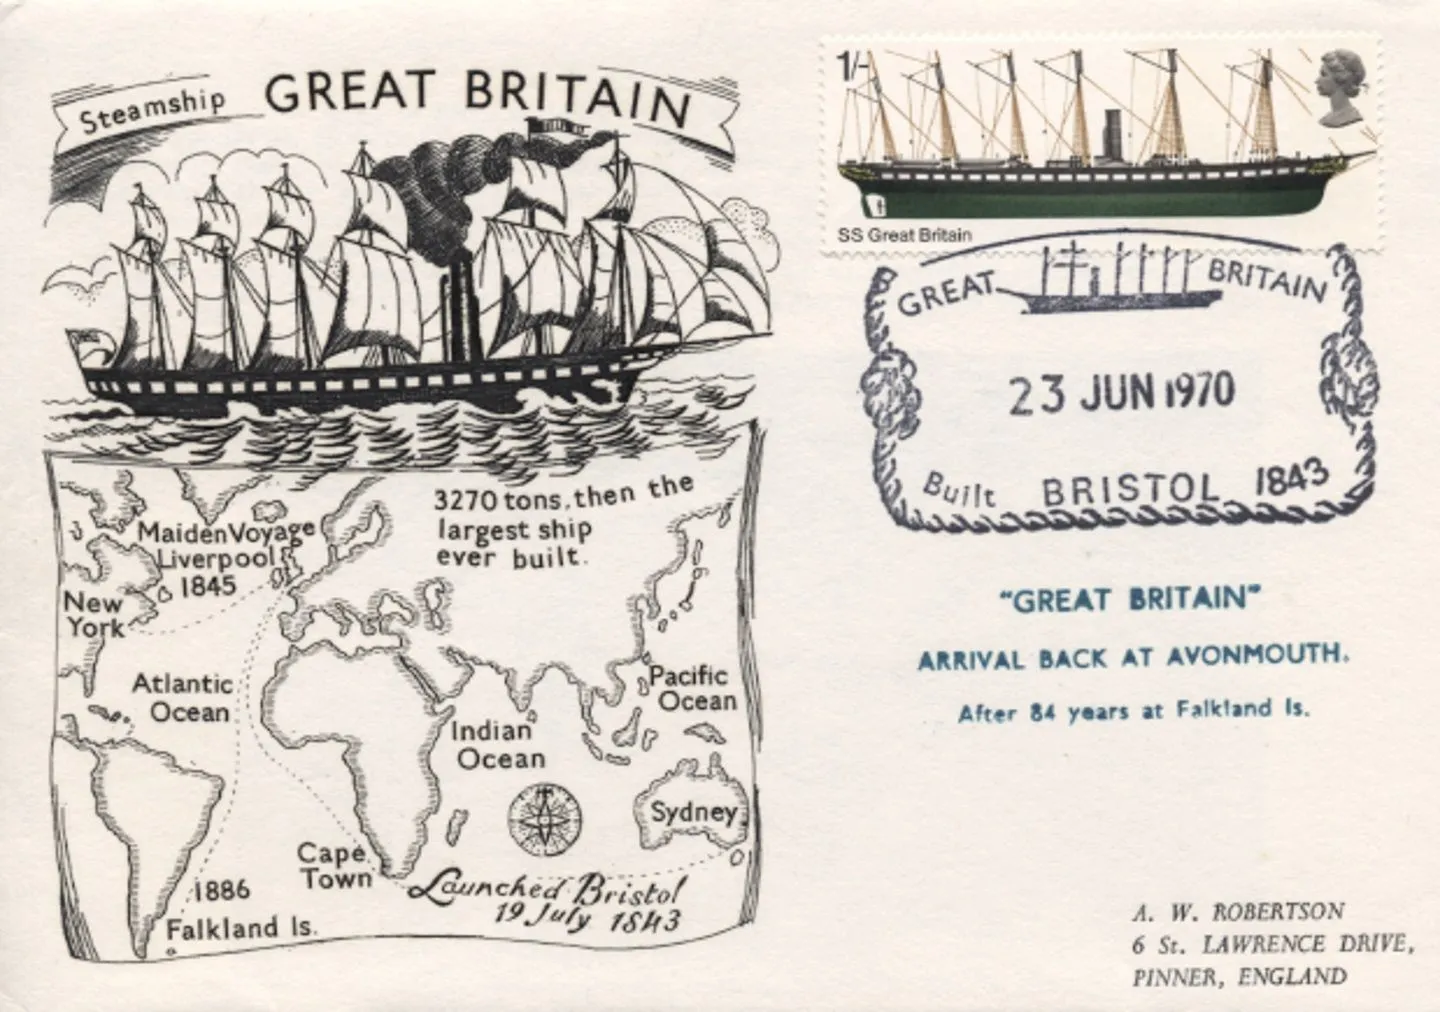 Steamship GREAT BRITAIN
3270 tons, then the
largest ship
ever built.
Maiden Voyage
Liverpool
1845
New
York
Atlantic
Ocean
Pacific
Ocean
Indian
Ocean
Sydney
Cape
Town
1886
Falkland Is.
Launched Bristol
19 July 1843
1/-
SS Great Britain
GREAT BRITAIN
23 JUN 1970
Built BRISTOL 1843
"GREAT BRITAIN"
ARRIVAL BACK AT AVONMOUTH.
After 84 years at Falkland Is.
A. W. ROBERTSON
6 St. LAWRENCE DRIVE,
PINNER, ENGLAND